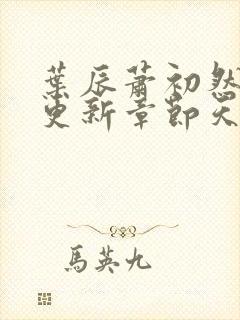 葉辰蕭初然
更新章節天
馬英九